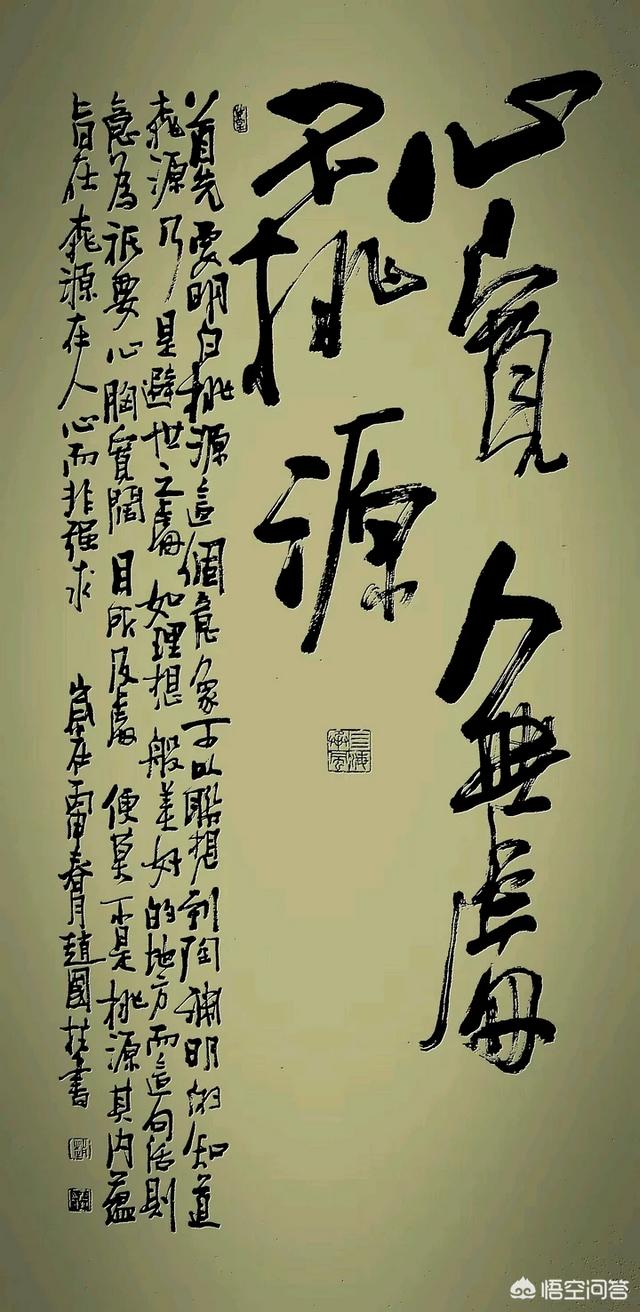 心寬無處
不桃源
首先要明白桃源這個意象可以聯想到陶渊明的知道
桃源乃是避世之處如理想般美好的地方而這句話則
意为祇要心胸寬闊目所及處便莫不是桃源其内蘊
旨在桃源在人心而非強求 歲在丙申春月趙國書
悟空问答